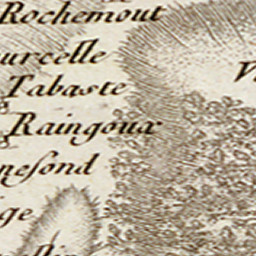 Rochemout
urcelle
Tabaste
V
Raingoux
nesond
ge